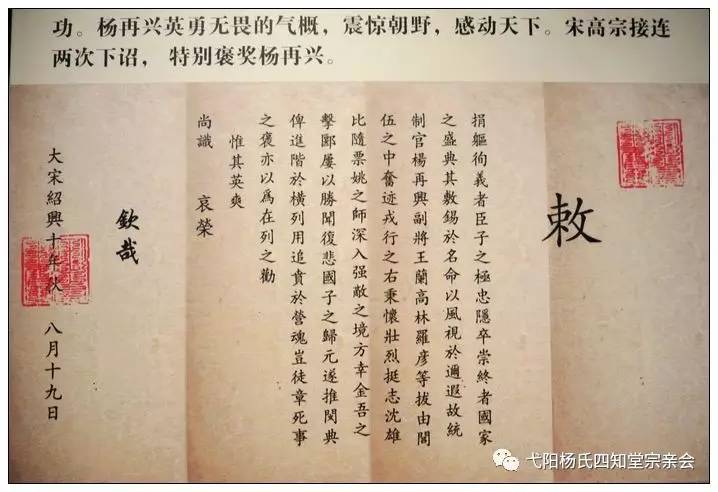 功。杨再兴英勇无畏的气概，震惊朝野，感动天下。宋高宗接连
两次下诏， 特别褒奖杨再兴。
敕
捐軀徇義者臣子之極忠隱卒崇終者國家
之盛典其敷錫於名命以風視於邇遐故統
制官楊再興副將王蘭高林羅彥等拔由閫
伍之中奮迹戎行之右秉懷壯烈挺志沈雄
比隨票姚之師深入强敵之境方幸金吾之
擊郾屢以勝聞復悲國子之歸元遂推閔典
俾進階於橫列用追賁於營魂豈徒章死事
之褒亦以爲在列之勸
惟其英爽
尚識 哀榮
欽哉
大宋紹興十年秋 八月十九日
弋阳杨氏四知堂宗亲会